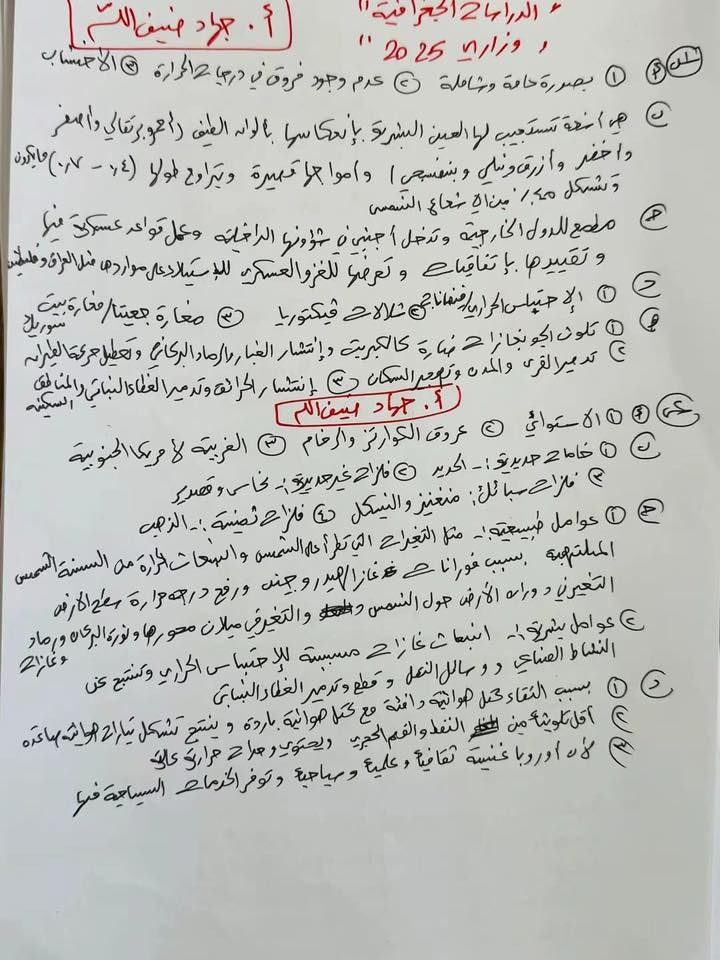 أ. جهاد ضيف الله
" الدراسات الجغرافية "
" وزاري 2025 "
س١ أ ① بصورة عامة وشاملة ② عدم وجود فروق في درجات الحرارة ③ الاحتباس
ب هي أشعة تستجيب لها العين البشرية بإنعكاسها بألوان الطيف (أحمر وبرتقالي وأصفر
وأخضر وأزرق ونيلي وبنفسجي) وأمواجها قصيرة ويتراوح طولها (٠،٤ - ٠،٧) مايكرون
وتشكل من الإشعاع الشمسي
ج مطمع للدول الخارجية وتدخل أجنبي في شؤونها الداخلية وعمل قواعد عسكرية فيها
وتقييدها بإتفاقيات وتعرضها للغزو العسكري للإستيلاء على مواردها مثل العراق وفلسطين
د ① الإحتباس الحراري/ ② شلالات فيكتوريا ③ مغارة جعيتا/مغارة بيت
هـ ① تلوث الجو بغازات ضارة كالكبريت وإنتشار الغبار والرماد البركاني وتعطيل حركة الطيران
② تدمير القرى والمدن وتهجير السكان ③ إنتشار الحرائق وتدمير الغطاء النباتي والمناطق السكنية
أ. جهاد ضيف الله
س٢ أ ① الاستوائي ② عروق الكوارتز والرخام ③ الغربية لأمريكا الجنوبية
ب ① خامات حديدية :- الحديد ② فلزات غير حديدية :- نحاس وقصدير
٣ فلزات سبائك: منغنيز والنيكل ④ فلزات ثمينة :- الذهب
ج ① عوامل طبيعية :- مثل التغيرات التي تطرأ على الشمس وانبعاث الحرارة من السنة الشمس
الملتهبة بسبب فورانات غاز الهيدروجين ورفع درجة حرارة سطح الأرض
التغير في دوران الأرض حول الشمس والتغير في ميلان محورها وثورة البركان ورماد وغازات
② عوامل بشرية :- انبعاث غازات مسببة للإحتباس الحراري وتنتج عن
النشاط الصناعي ووسائل النقل وقطع وتدمير الغطاء النباتي
د ① بسبب التقاء كتل هوائية دافئة مع كتل هوائية باردة وينتج تشكل تيارات هوائية صاعدة
② أقل تلويثاً من النفط والفحم الحجري ويحتوي وحدات حرارية عالية
③ لأن أوروبا غنية ثقافياً وعلمياً وسياحياً وتوفر الخدمات السياحية فيها